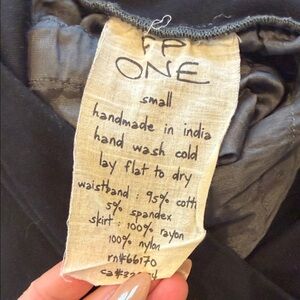 FP
ONE
small
handmade in india
hand wash cold
lay flat to dry
waistband : 95% cott
5% spandex
skirt : 100% rayon
100% nylon
rn#66170